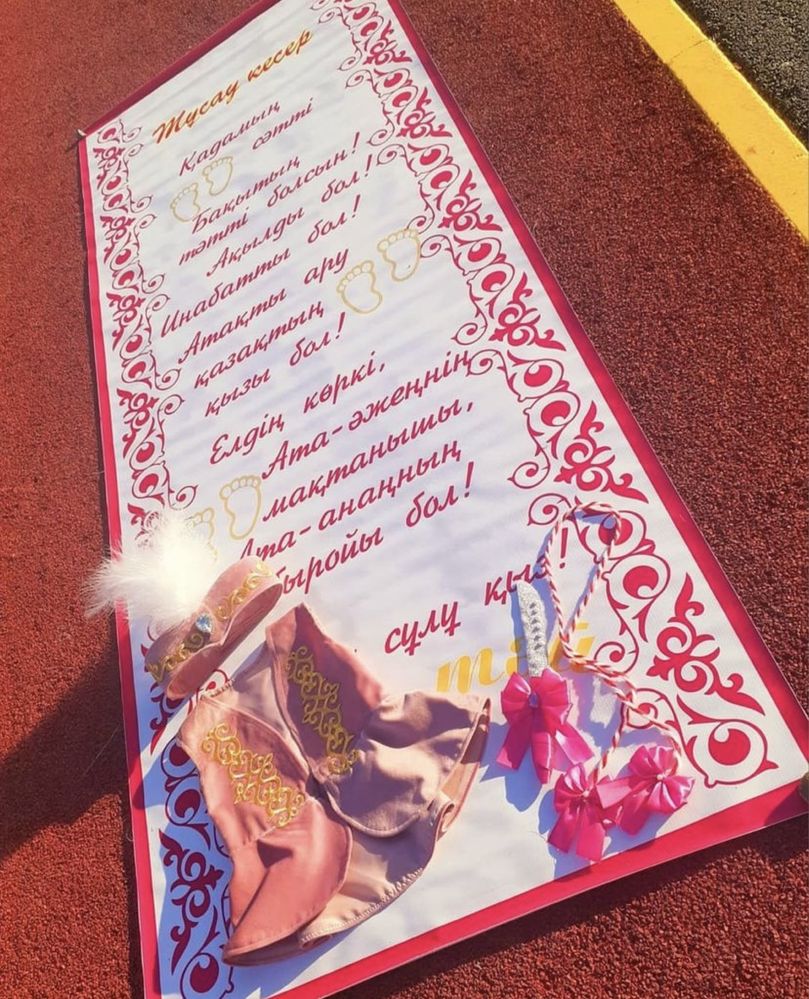 Тұсау кесер
Қадамың
сәтті
Бақытың
тәтті болсын!
Ақылды бол!
Инабатты бол!
Атақты ару
қазақтың
қызы бол!
Елдің көркі,
Ата-әжеңнің
мақтанышы,
Ата-анаңның
быройы бол!
сұлу қыз!